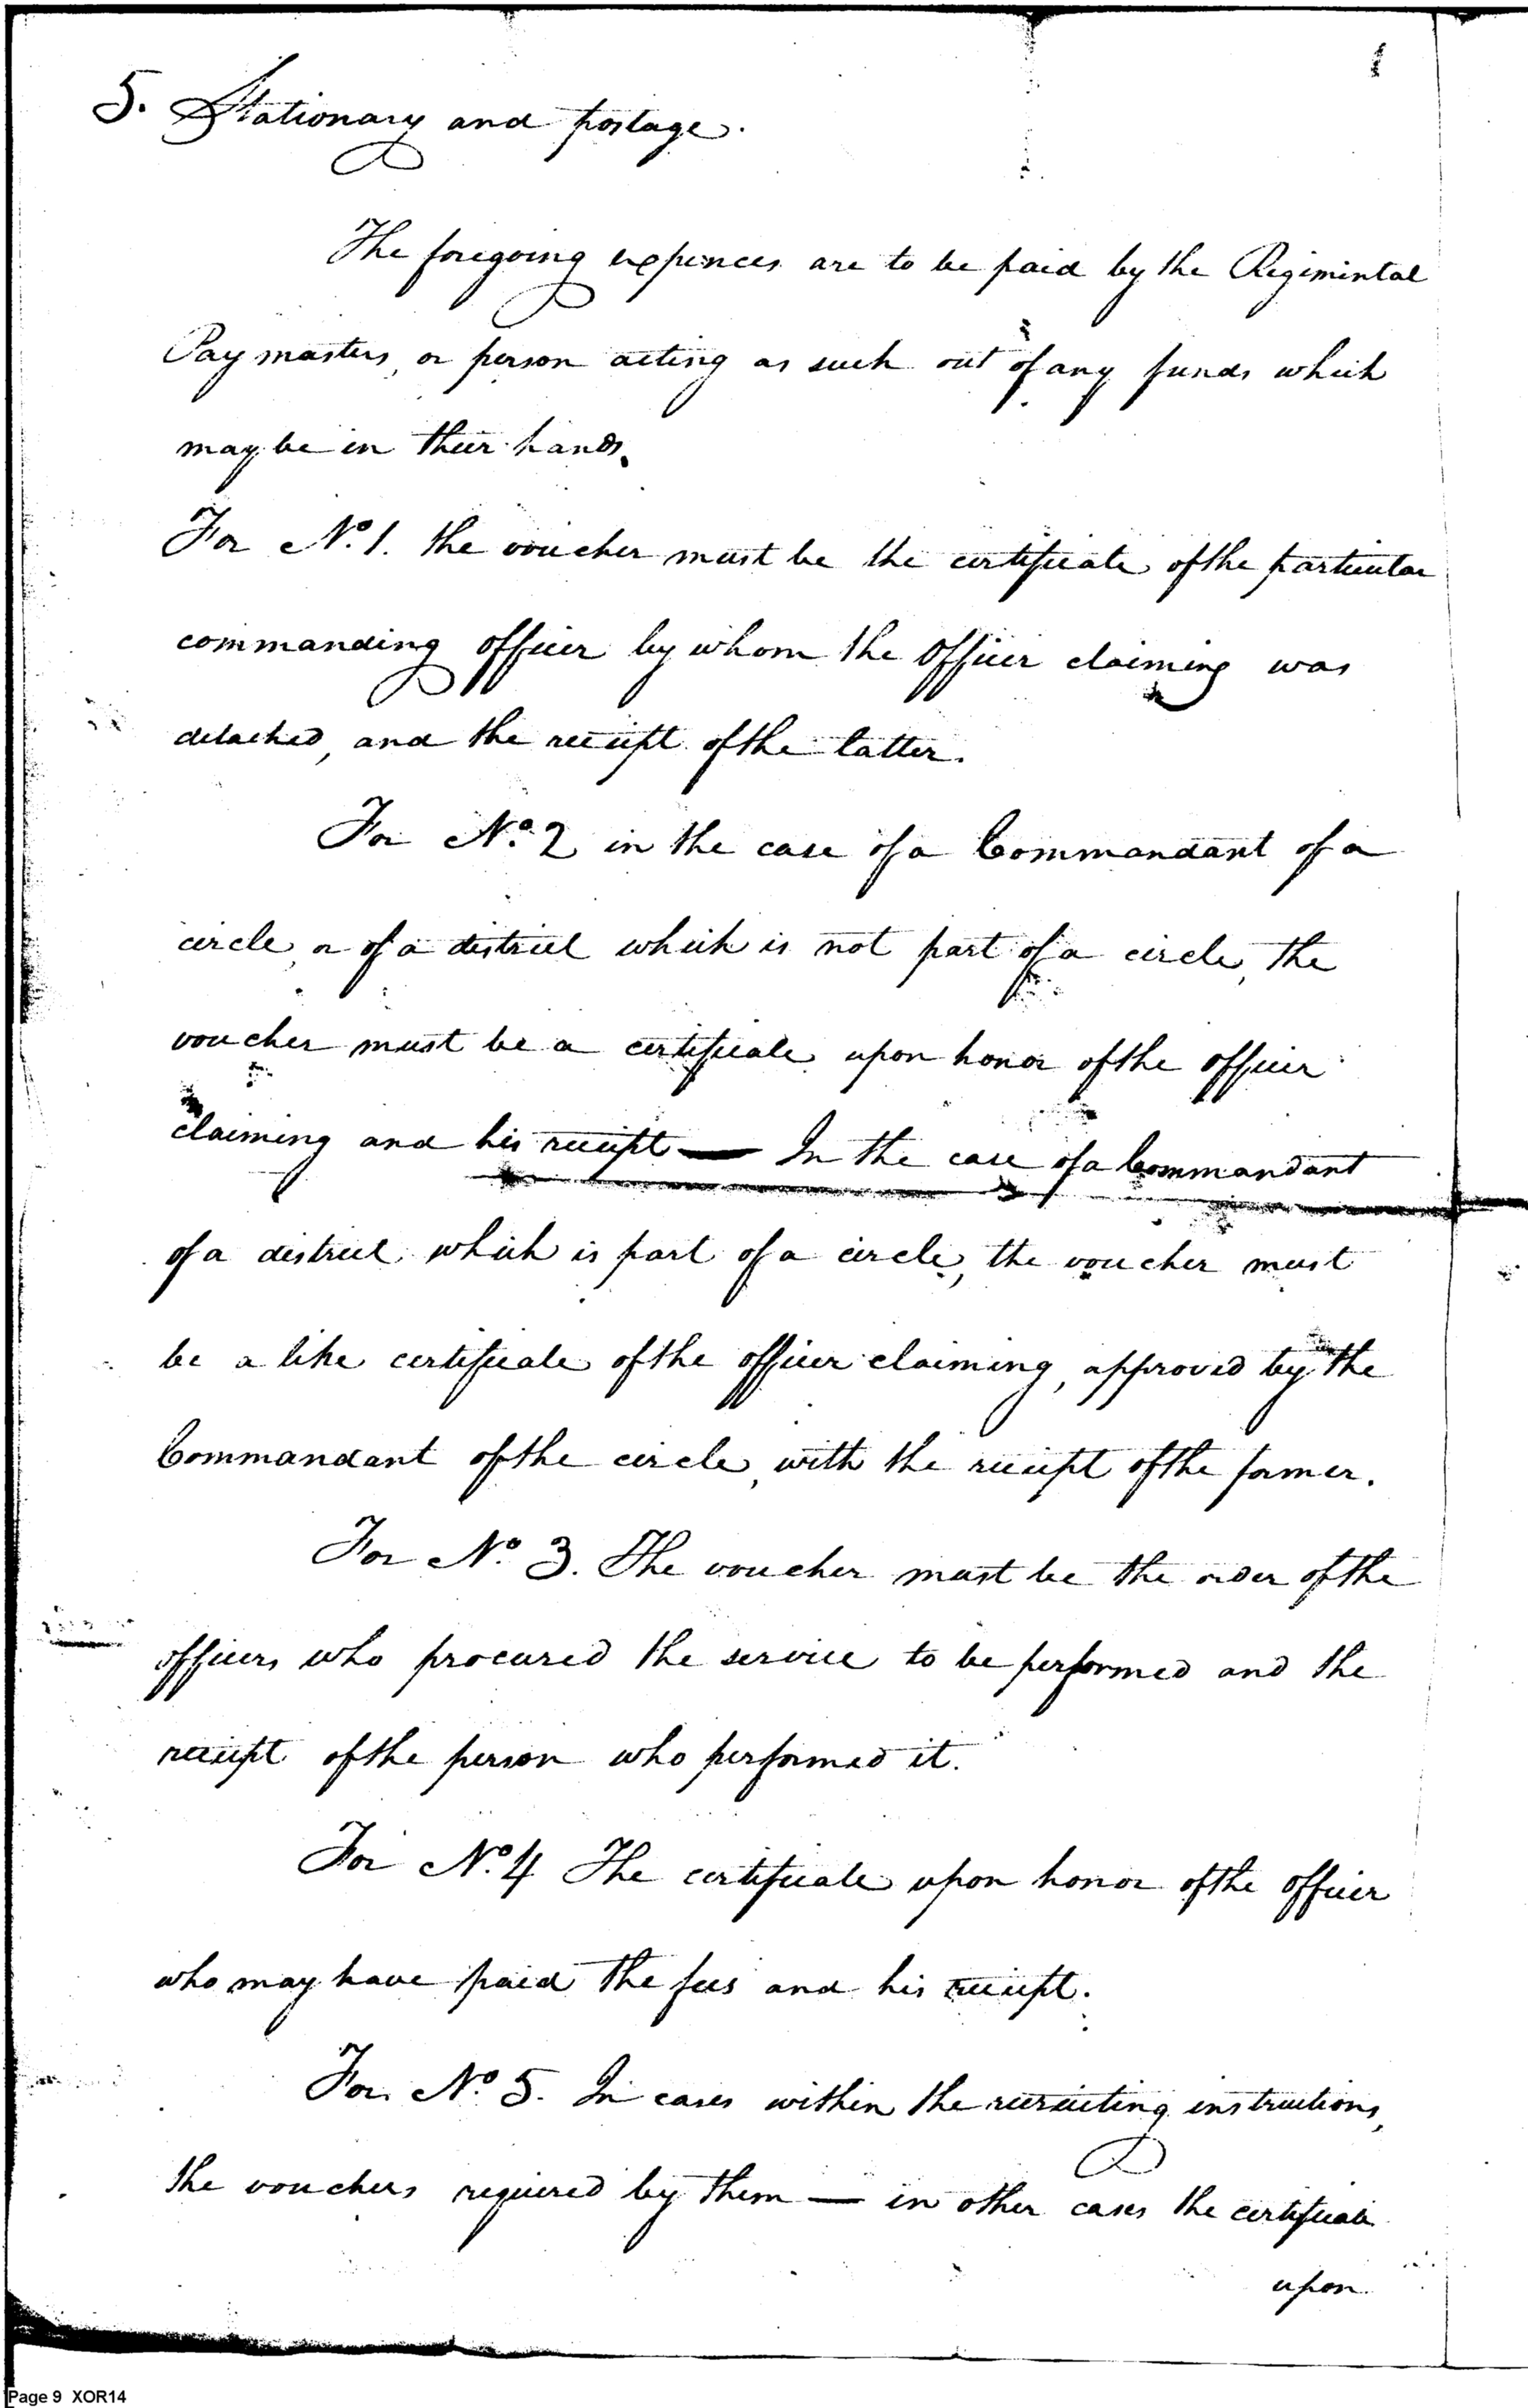 5. Stationary and postage.
The foregoing expences are to be paid by the Regimental
Paymasters, or person acting as such out of any funds which
may be in their hands.
For No. 1. the voucher must be the certificate of the particular
commanding officer by whom the Officer claiming was
detached, and the receipt of the latter.
For No. 2 in the case of a Commandant of a
circle, or of a district which is not part of a circle, the
voucher must be a certificate upon honor of the officer
claiming and his receipt — In the case of a Commandant
of a district which is part of a circle, the voucher must
be a like certificate of the officer claiming, approved by the
Commandant of the circle, with the receipt of the former.
For No. 3. The voucher must be the order of the
officers who procured the service to be performed and the
receipt of the person who performed it.
For No. 4 The certificate upon honor of the officer
who may have paid the fees and his receipt.
For No. 5. In cases within the recruiting instructions,
the vouchers required by them — in other cases the certificate
upon
Page 9 XOR14